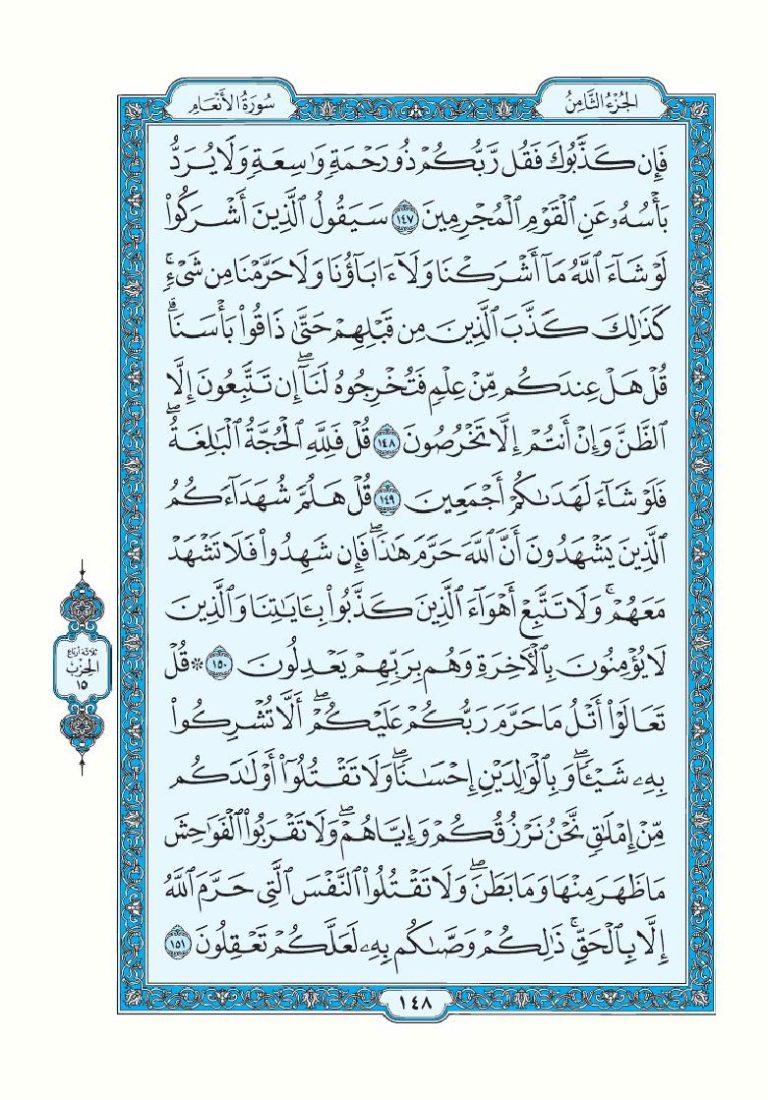 الجُزْءُ الثَّامِنُ
سُورَةُ الأَنْعَامِ
فَإِن كَذَّبُوكَ فَقُل رَّبُّكُمْ ذُو رَحْمَةٍ وَٰسِعَةٍ وَلَا يُرَدُّ
بَأْسُهُۥ عَنِ ٱلْقَوْمِ ٱلْمُجْرِمِينَ ١٤٧ سَيَقُولُ ٱلَّذِينَ أَشْرَكُوا۟
لَوْ شَآءَ ٱللَّهُ مَآ أَشْرَكْنَا وَلَآ ءَابَآؤُنَا وَلَا حَرَّمْنَا مِن شَىْءٍۚ
كَذَٰلِكَ كَذَّبَ ٱلَّذِينَ مِن قَبْلِهِمْ حَتَّىٰ ذَاقُوا۟ بَأْسَنَاۗ
قُلْ هَلْ عِندَكُم مِّنْ عِلْمٍ فَتُخْرِجُوهُ لَنَآۖ إِن تَتَّبِعُونَ إِلَّا
ٱلظَّنَّ وَإِنْ أَنتُمْ إِلَّا تَخْرُصُونَ ١٤٨ قُلْ فَلِلَّهِ ٱلْحُجَّةُ ٱلْبَٰلِغَةُۖ
فَلَوْ شَآءَ لَهَدَىٰكُمْ أَجْمَعِينَ ١٤٩ قُلْ هَلُمَّ شُهَدَآءَكُمُ
ٱلَّذِينَ يَشْهَدُونَ أَنَّ ٱللَّهَ حَرَّمَ هَٰذَاۖ فَإِن شَهِدُوا۟ فَلَا تَشْهَدْ
مَعَهُمْۚ وَلَا تَتَّبِعْ أَهْوَآءَ ٱلَّذِينَ كَذَّبُوا۟ بِـَٔايَٰتِنَا وَٱلَّذِينَ
لَا يُؤْمِنُونَ بِٱلْءَاخِرَةِ وَهُم بِرَبِّهِمْ يَعْدِلُونَ ١٥٠ ۞ قُلْ
تَعَالَوْا۟ أَتْلُ مَا حَرَّمَ رَبُّكُمْ عَلَيْكُمْۖ أَلَّا تُشْرِكُوا۟
بِهِۦ شَيْـًٔاۖ وَبِٱلْوَٰلِدَيْنِ إِحْسَٰنًاۖ وَلَا تَقْتُلُوٓا۟ أَوْلَٰدَكُم
مِّنْ إِمْلَٰقٍۖ نَّحْنُ نَرْزُقُكُمْ وَإِيَّاهُمْۖ وَلَا تَقْرَبُوا۟ ٱلْفَوَٰحِشَ
مَا ظَهَرَ مِنْهَا وَمَا بَطَنَۖ وَلَا تَقْتُلُوا۟ ٱلنَّفْسَ ٱلَّتِى حَرَّمَ ٱللَّهُ
إِلَّا بِٱلْحَقِّۚ ذَٰلِكُمْ وَصَّىٰكُم بِهِۦ لَعَلَّكُمْ تَعْقِلُونَ ١٥١
ثلاثة أرباع
الحزب
١٥
١٤٨